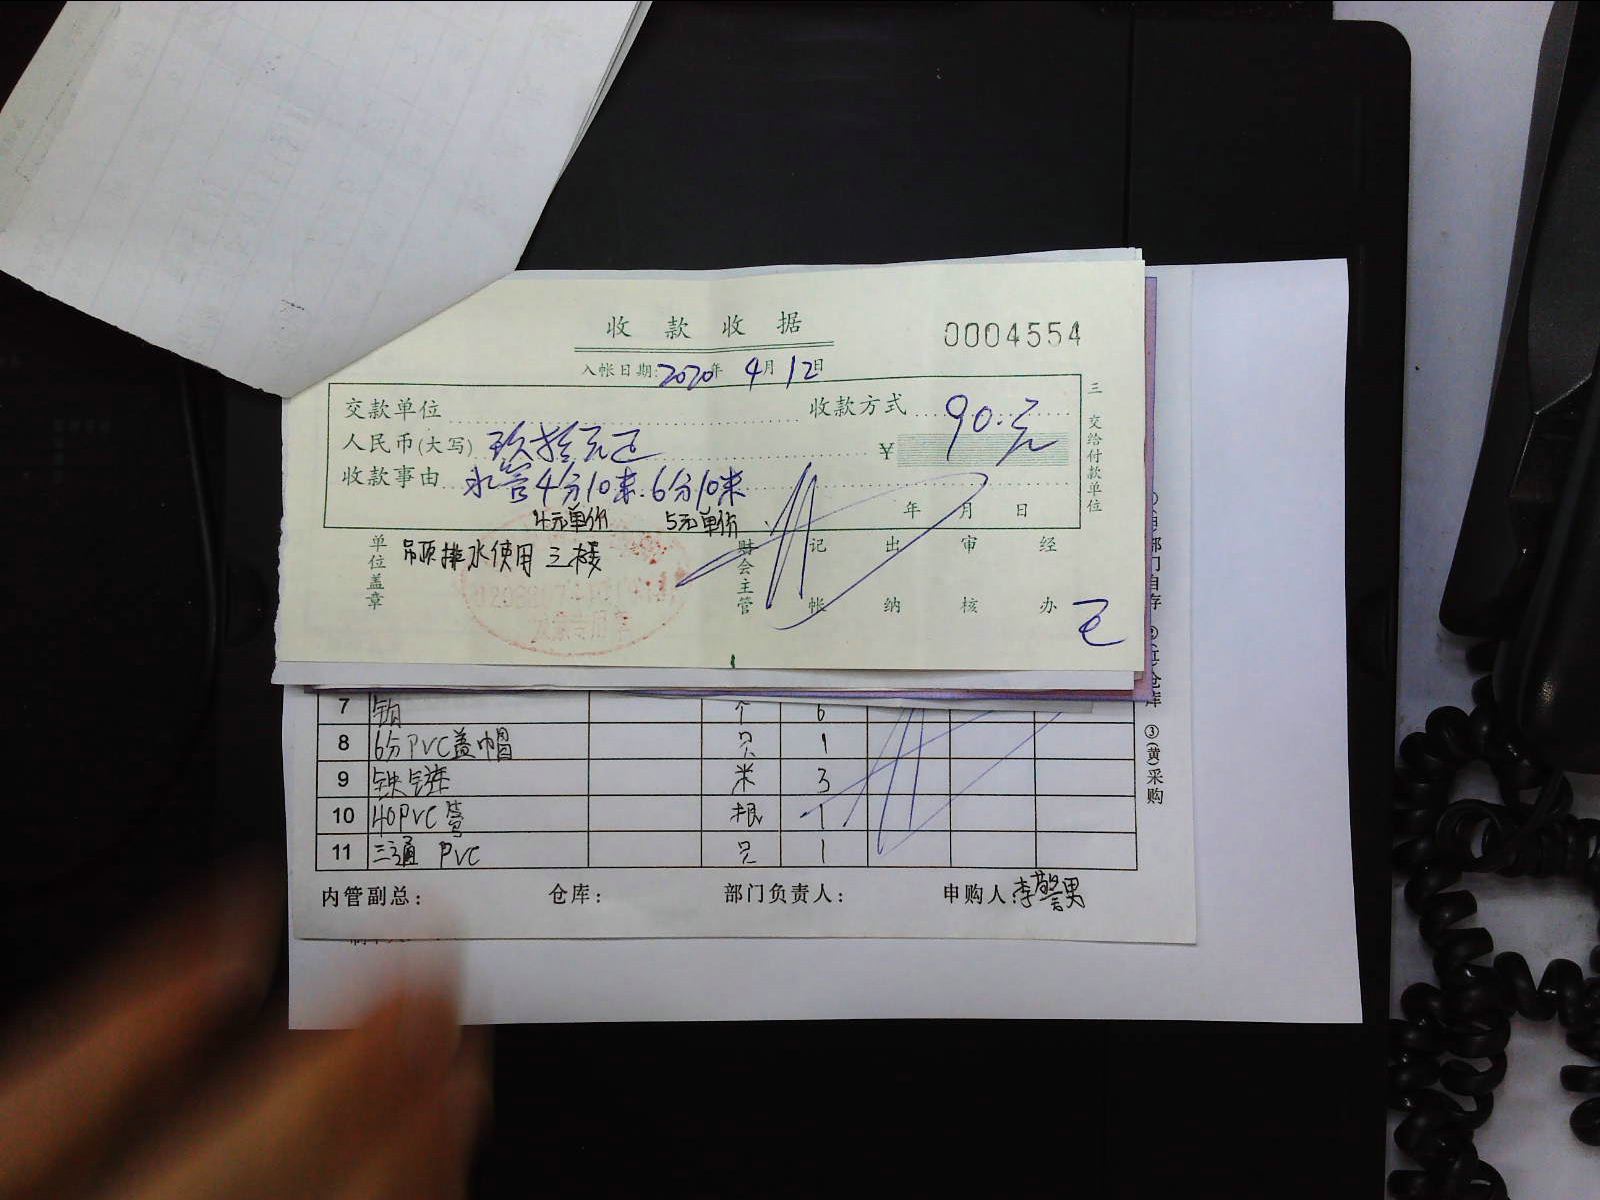 收款收据
0004554
入帐日期:2020年4月12日
交款单位 收款方式
人民币(大写) 玖拾元正 ¥ 90.元
收款事由 水管4分10米.6分10米
4元单价 5元单价
年 月 日
三 交给付款单位
单位盖章 吊顶排水使用 三楼
财会主管 记帐 出纳 审核 经办
7 个 6
8 6分PVC盖帽 只 1
9 铁链 米 3
10 40PVC管 根 1
11 三通 PVC 只 1
③(黄)采购
内管副总: 仓库: 部门负责人: 申购人:李警男